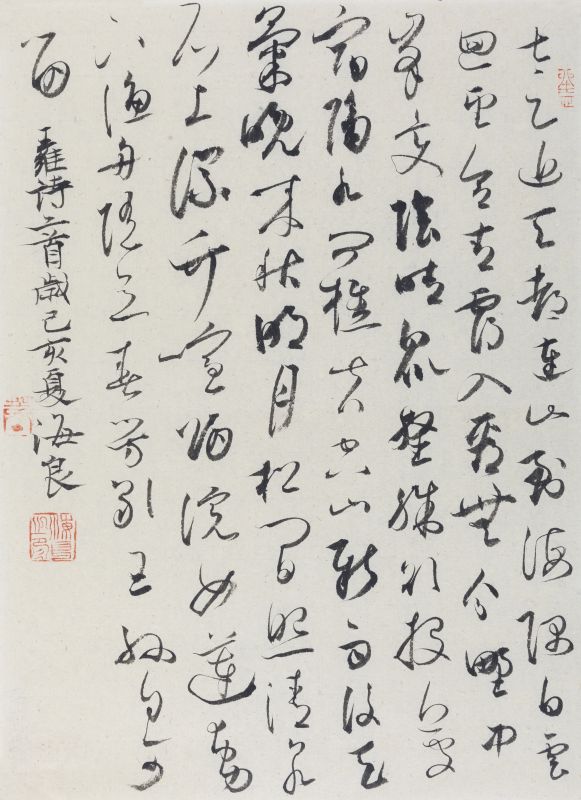 太乙近天都連山到海隅白雲
回望合青靄入看無分野中
峯變陰晴衆壑殊欲投人處
宿隔水問樵夫空山新雨後天
氣晚來秋明月松間照清泉
石上流竹喧歸浣女蓮動
下漁舟隨意春芳歇王孫自可
留
王維詩二首歲己亥夏海良